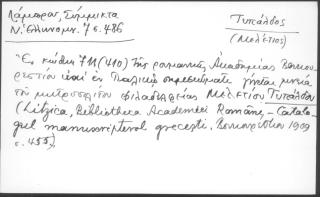 Λάμπρου, Σύμμικτα
Ν. Ἑλληνομν. 7 σ. 486
Τυπάλδος
(Μελέτιος)
"Ἐν κώδικι 711 (410) τῆς ρουμανικῆς Ἀκαδημίας Βουκου-
ρεστίου ἐν Ἰταλικῷ σημειώματι γίνεται μνεία
τοῦ μητροπολίτου Φιλαδελφείας Μελετίου Τυπάλδου
(Litzica, Bibliotheca Academiei Române - Catalo-
gul manuscriptelor grecești. Βουκουρέστιον 1909
σ. 455).